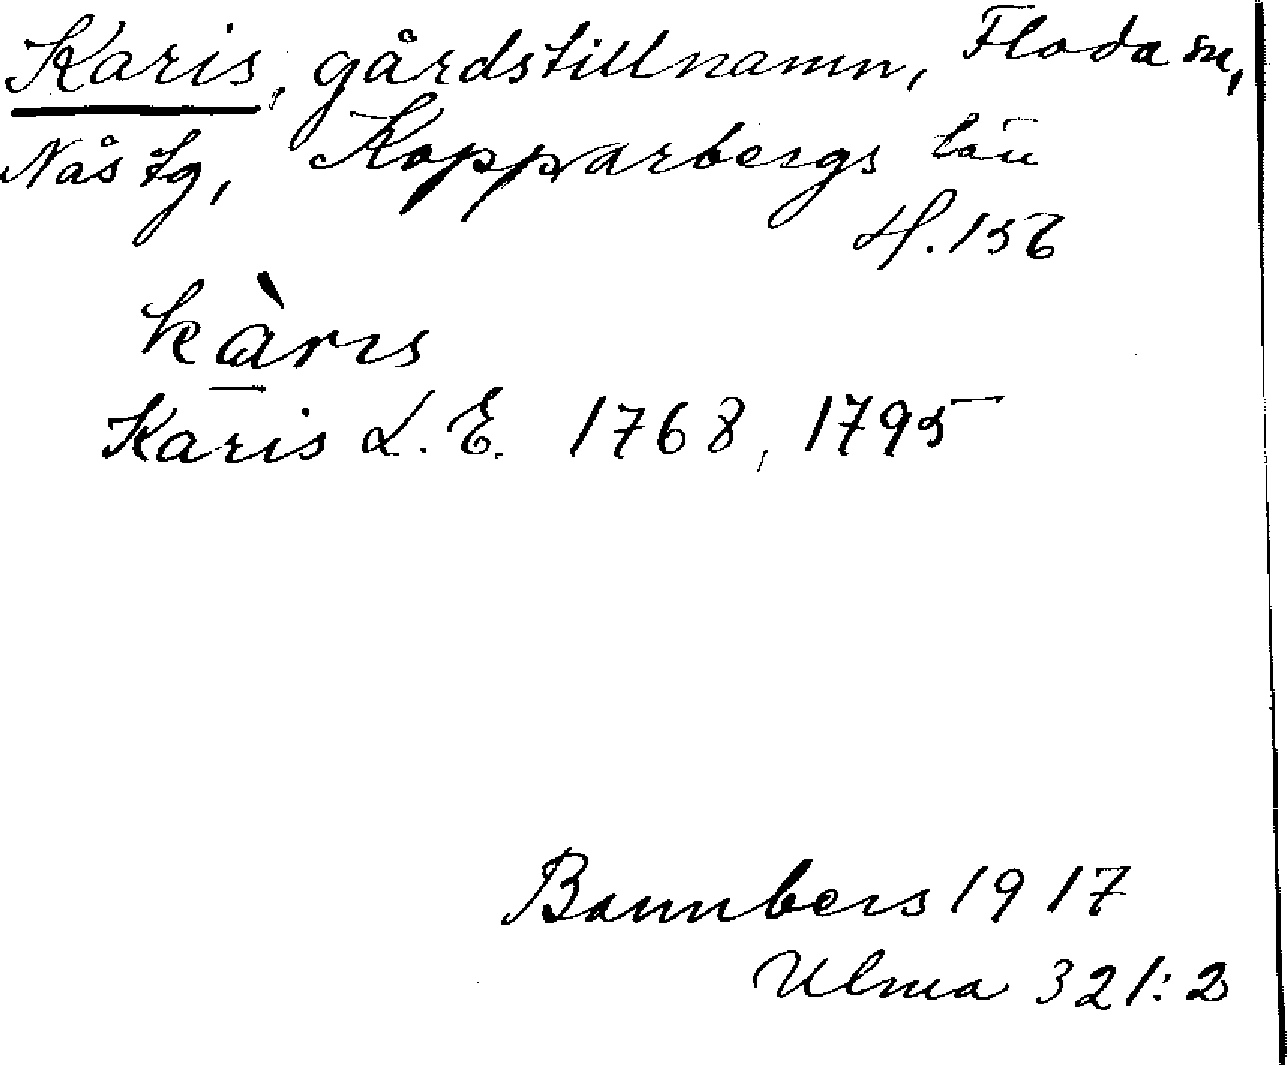 Karis, gårdstillnamn, Floda sn,
Nås tg, Kopparbergs län
H. 156
kàrıs
Karis L. E. 1768, 1795
Bannbers 1917
Ulma 321:2